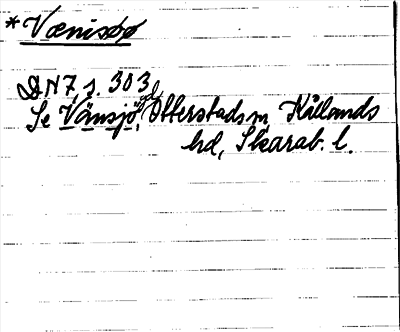 *Vænisøø
DN7 s. 303
Se Vänsjö, Otterstads sn, Kållands
hd, Skarab. l.